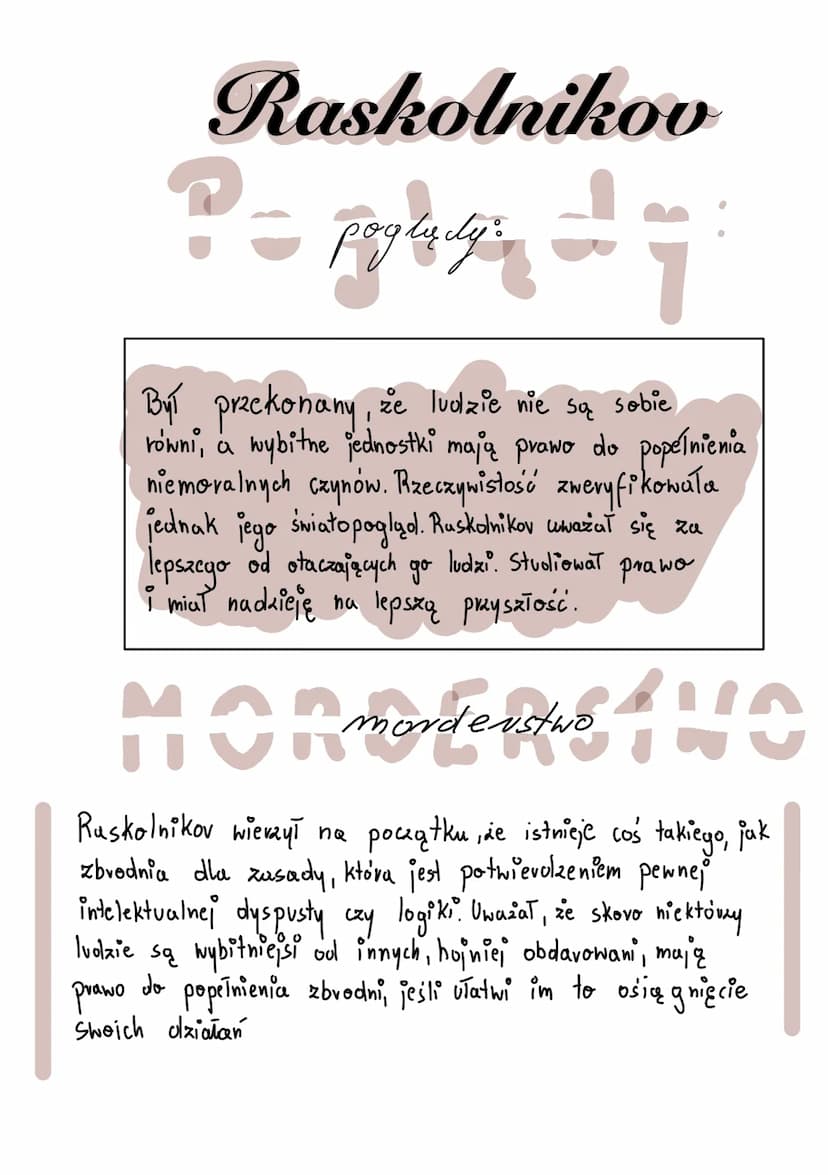 Raskolnikov
Poglądy:
poglądy:
Był przekonany, że ludzie nie są sobie
równi, a wybitne jednostki mają prawo do popełnienia
niemoralnych czynów. Rzeczywistość zweryfikowała
jednak jego światopogląd. Raskolnikov uważał się za
lepszego od otaczających go ludzi. Studiował prawo
i miał nadzieję na lepszą przyszłość.
MORDERSTWO
morderstwo
Raskolnikov wierzył na początku, że istnieje coś takiego, jak
zbrodnia dla zasady, która jest potwierdzeniem pewnej
intelektualnej dyspusty czy logiki. Uważał, że skoro niektórzy
ludzie są wybitniejsi od innych, hojniej obdarowani, mają
prawo do popełnienia zbrodni, jeśli ułatwi im to ośiągnięcie
swoich działań